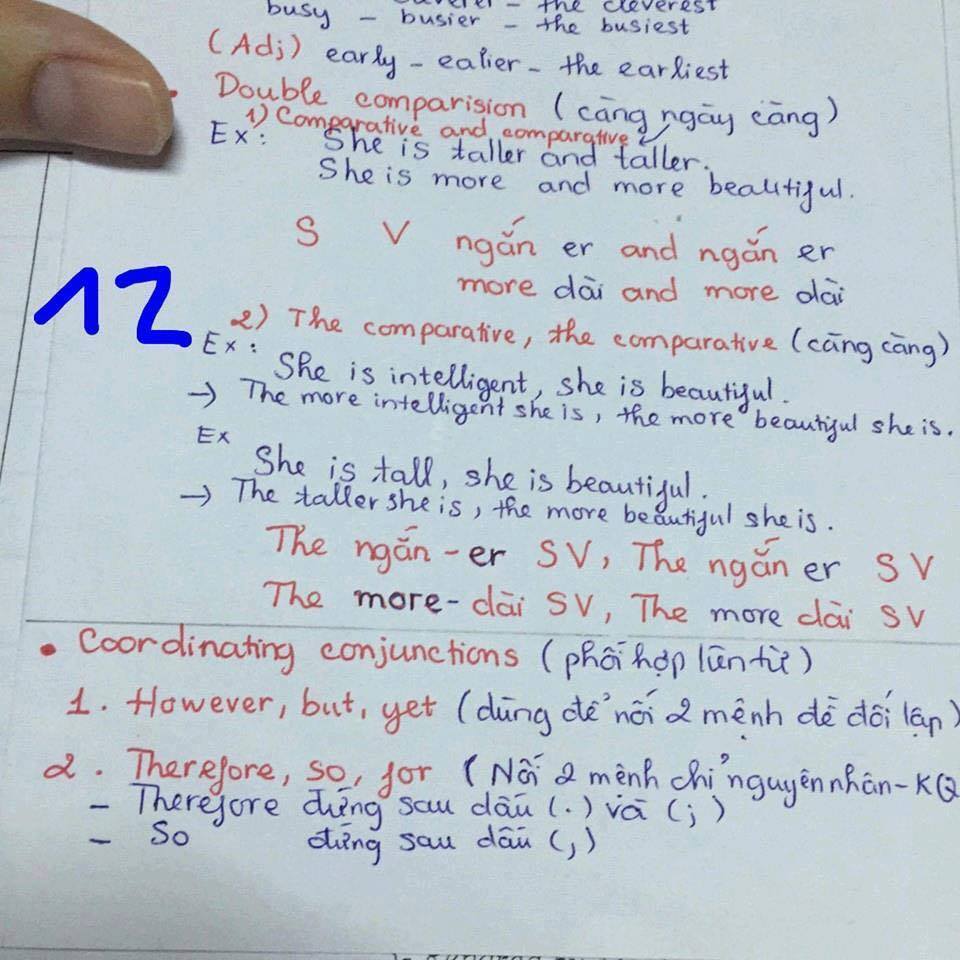 the cleverest
busy - busier - the busiest
(Adj) early - ealier - the earliest
Double comparision (càng ngày càng)
1) Comparative and comparative
Ex: She is taller and taller.
She is more and more beautiful.
S V ngắn er and ngắn er
more dài and more dài
12
2) The comparative, the comparative (càng càng)
Ex:
She is intelligent, she is beautiful.
→ The more intelligent she is, the more beautiful she is.
Ex
She is tall, she is beautiful.
→ The taller she is, the more beautiful she is.
The ngắn - er S V, The ngắn er S V
The more - dài SV, The more dài SV
• Coordinating conjunctions (phối hợp liên từ)
1. However, but, yet (dùng để nối 2 mệnh đề đối lập)
2. Therefore, so, for (Nối 2 mệnh chỉ nguyên nhân - KQ
- Therefore đứng sau dấu (.) và (;)
- So đứng sau dấu (,)